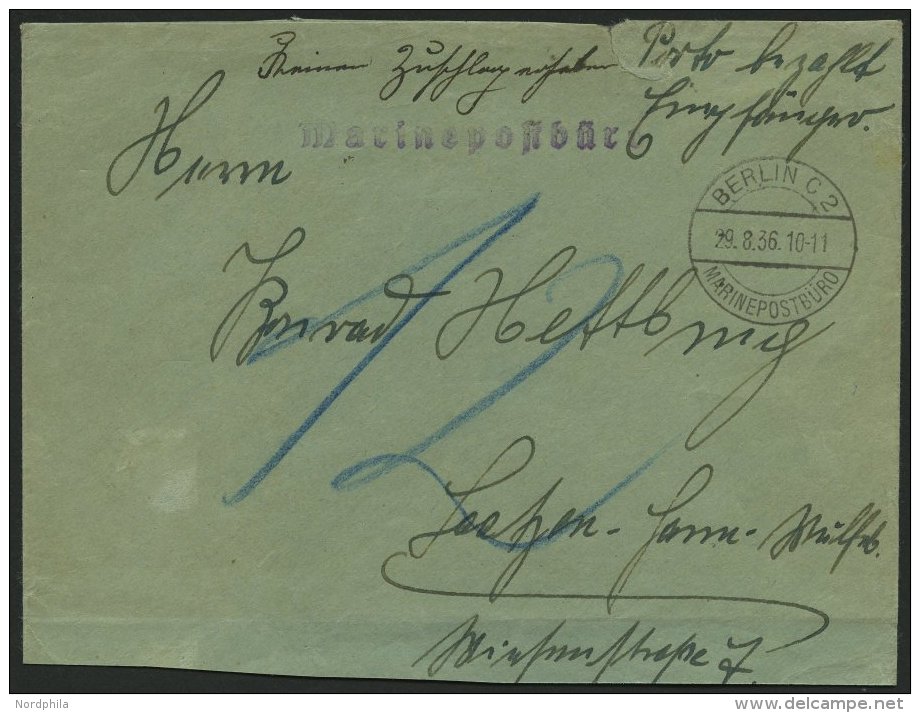 Keinen Zuschlag erheben
Porto bezahlt
Empfänger.
Marinepostbür
Herrn
BERLIN C 2
29.8.36.10-11
MARINEPOSTBÜRO
12
Konrad
Laatzen - Hann - Wülfel.
Wiesenstraße 7.
Nordphila
delcampe.net